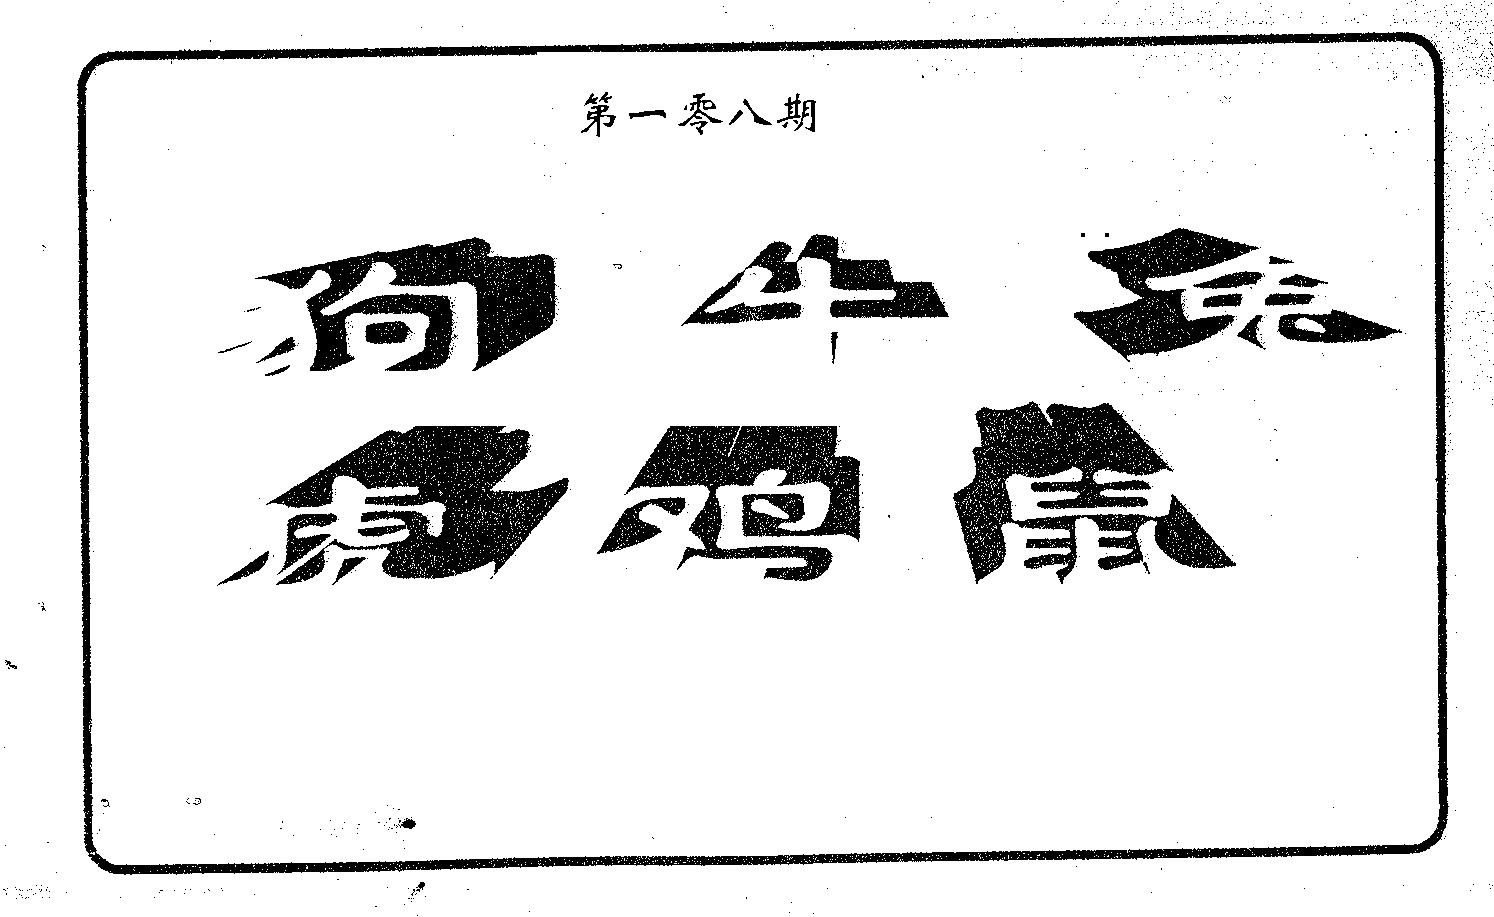 第一零八期
狗 牛 兔
虎 鸡 鼠